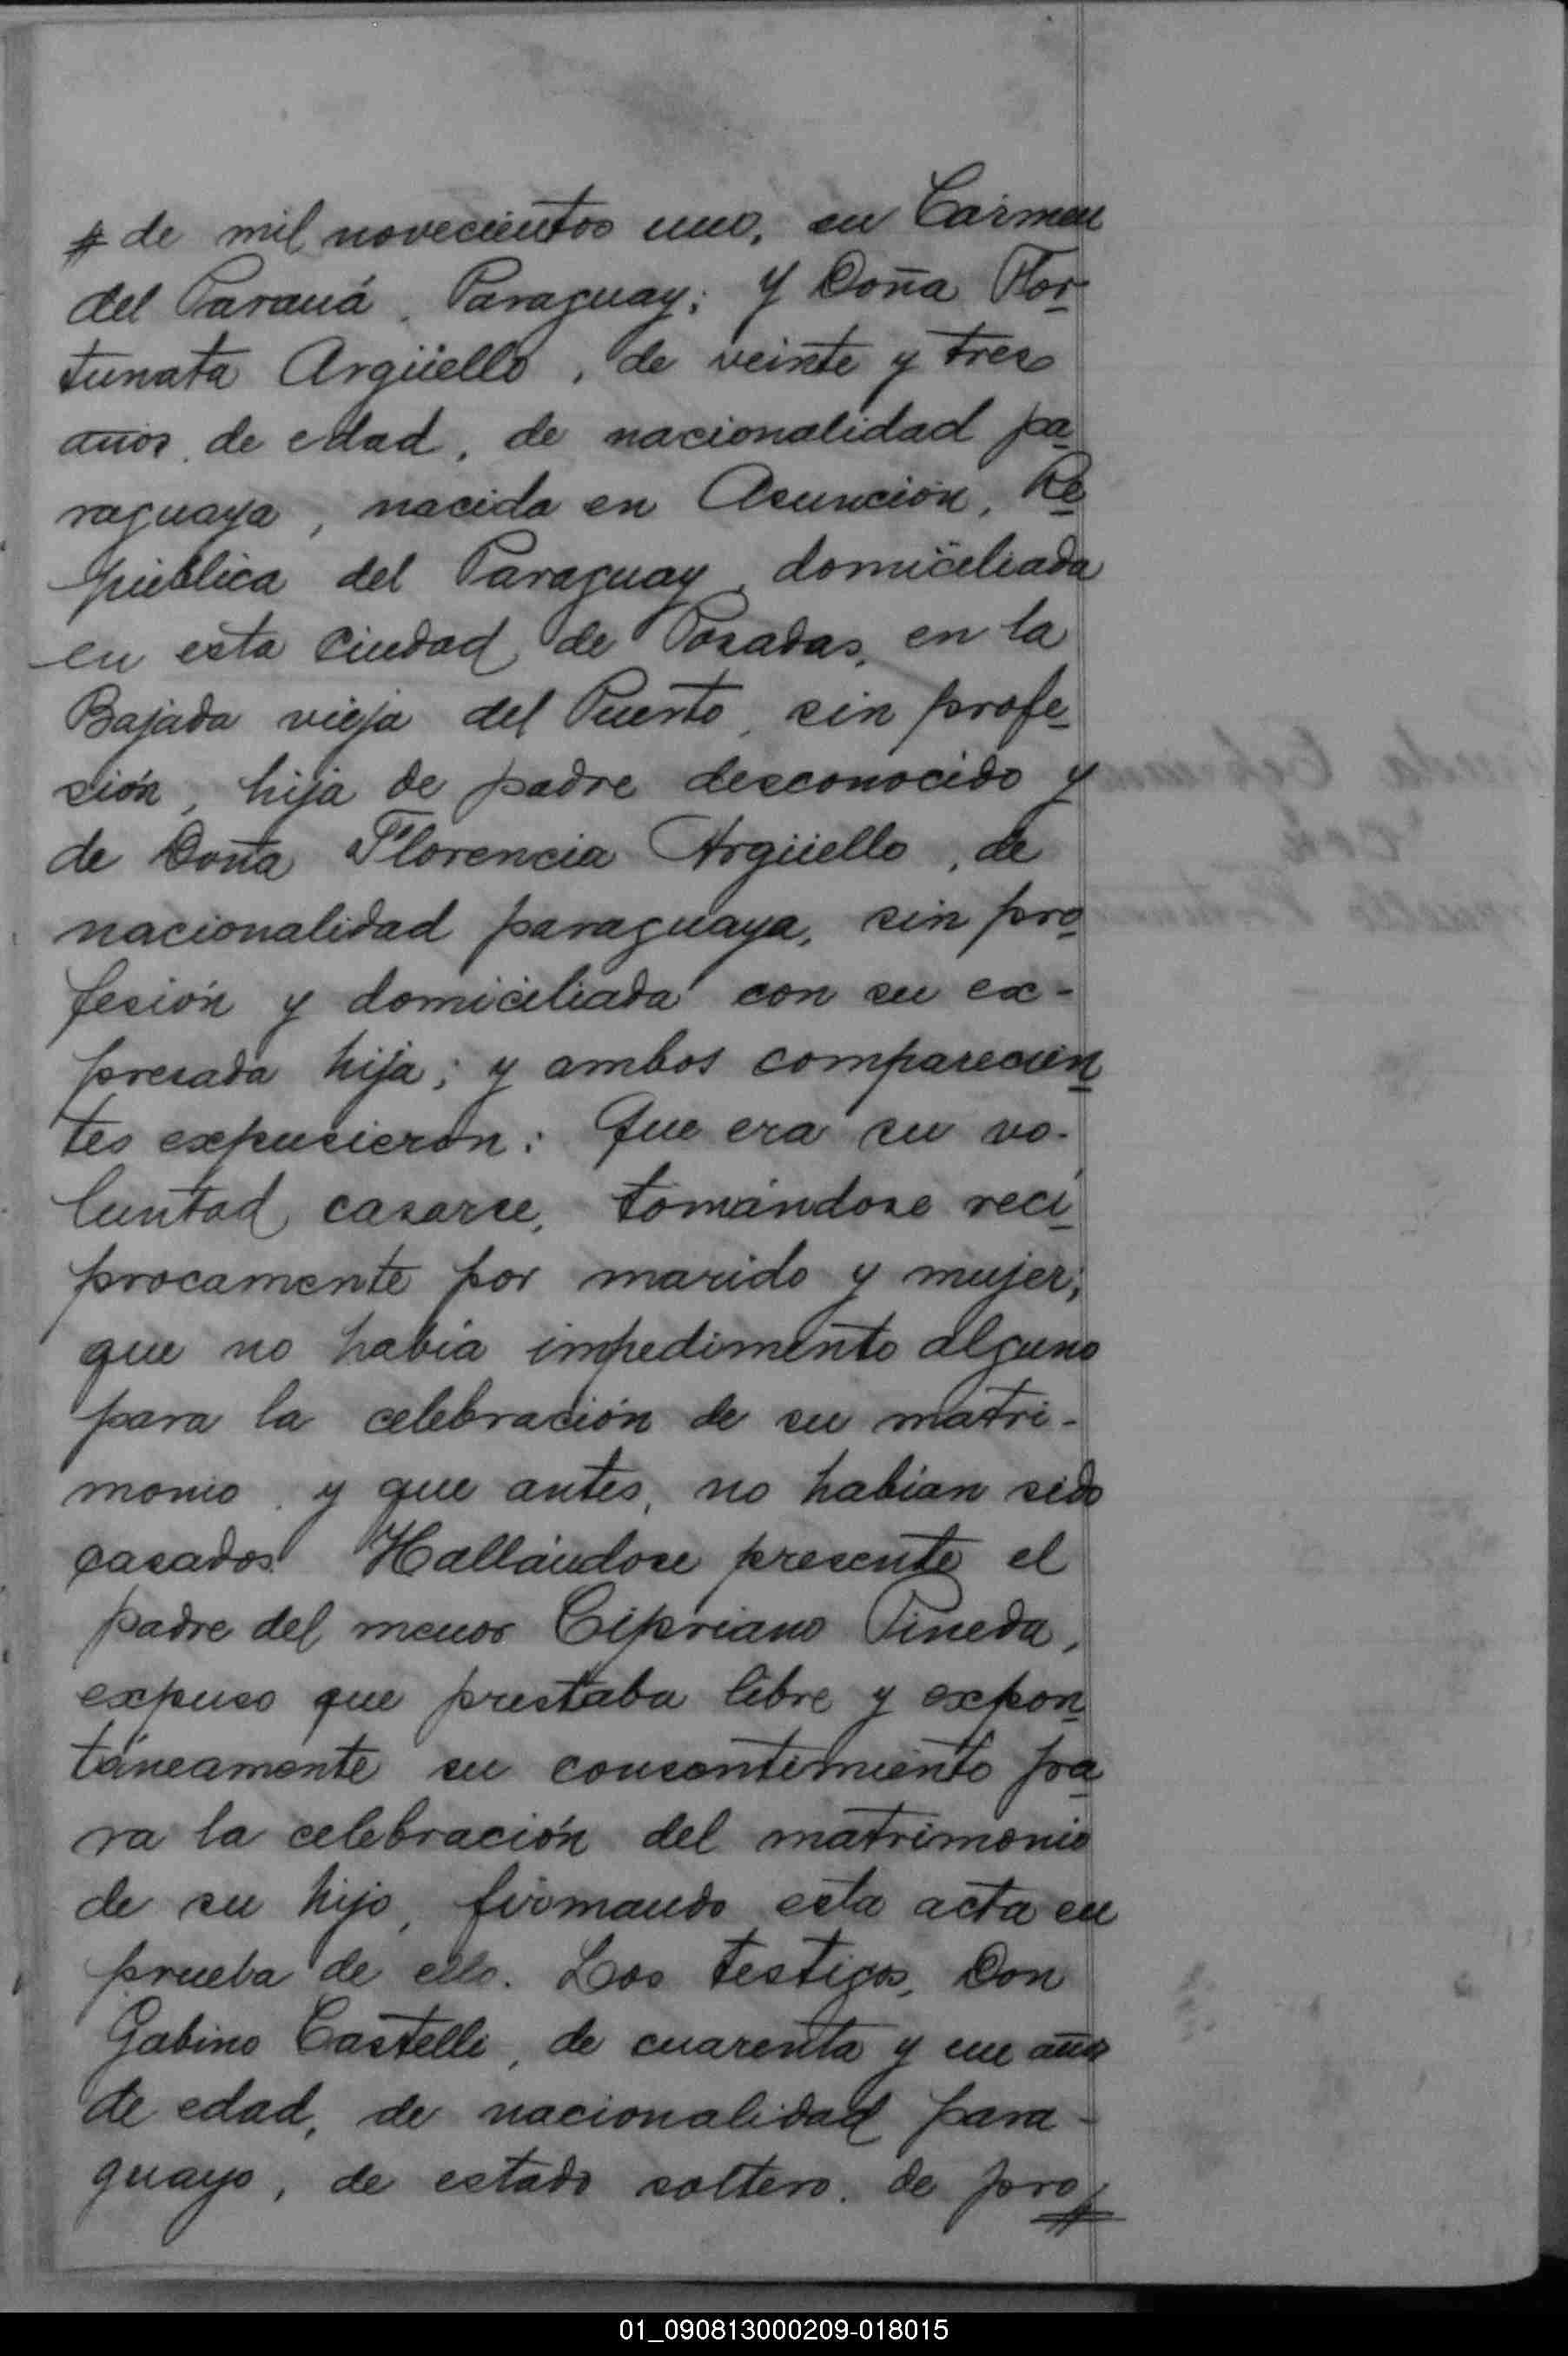 # de mil novecientos uno, en Carmen
del Paraná, Paraguay; y Doña For-
tunata Argüello, de veinte y tres
años de edad, de nacionalidad pa-
raguaya, nacida en Asunción, Re-
pública del Paraguay, domiciliada
en esta Ciudad de Posadas, en la
Bajada vieja del Puerto, sin profe-
sión, hija de padre desconocido y
de Doña Florencia Argüello, de
nacionalidad paraguaya, sin pro-
fesión y domiciliada con su ex-
presada hija; y ambos comparecien-
tes expusieron: Que era su vo-
luntad casarse, tomándose recí-
procamente por marido y mujer;
que no había impedimento alguno
para la celebración de su matri-
monio, y que antes, no habían sido
casados. Hallándose presente el
padre del menor Cipriano Pineda,
expuso que prestaba libre y expon-
táneamente su consentimiento pa-
ra la celebración del matrimonio
de su hijo, firmando esta acta en
prueba de ello. Los testigos, Don
Gabino Castelli, de cuarenta y un años
de edad, de nacionalidad para-
guayo, de estado soltero, de pro #
01_090813000209-018015